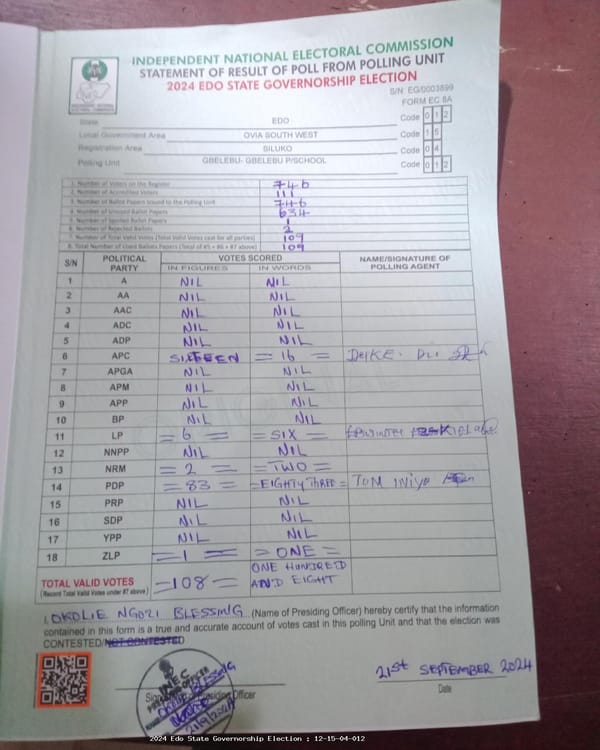 INDEPENDENT NATIONAL ELECTORAL COMMISSION
STATEMENT OF RESULT OF POLL FROM POLLING UNIT
2024 EDO STATE GOVERNORSHIP ELECTION
S/N: EG/0003899
FORM EC 8A
State EDO Code 0 1 2
Local Government Area OVIA SOUTH WEST Code 1 5
Registration Area SILUKO Code 0 4
Polling Unit GBELEBU- GBELEBU P/SCHOOL Code 0 1 2
1. Number of Voters on the Register 746
2. Number of Accredited Voters 111
3. Number of Ballot Papers Issued to the Polling Unit 746
4. Number of Unused Ballot Papers 634
5. Number of Spoiled Ballot Papers 1
6. Number of Rejected Ballots 2
7. Number of Total Valid Votes (Total Valid Votes cast for all parties) 109
8. Total Number of Used Ballots Papers (Total of #5 + #6 + #7 above) 109
S/N POLITICAL PARTY VOTES SCORED NAME/SIGNATURE OF POLLING AGENT
IN FIGURES IN WORDS
1 A NIL NIL
2 AA NIL NIL
3 AAC NIL NIL
4 ADC NIL NIL
5 ADP NIL NIL
6 APC SIXTEEN = 16 =
7 APGA NIL NIL
8 APM NIL NIL
9 APP NIL NIL
10 BP NIL NIL
11 LP = 6 = = SIX =
12 NNPP NIL NIL
13 NRM = 2 = = TWO =
14 PDP = 83 = = EIGHTY THREE = TOM INIYE
15 PRP NIL NIL
16 SDP NIL NIL
17 YPP NIL NIL
18 ZLP = 1 = = ONE =
TOTAL VALID VOTES = 108 = ONE HUNDRED AND EIGHT
(Record Total Valid Votes under #7 above)
I, OKOLIE NGOZI BLESSING (Name of Presiding Officer) hereby certify that the information
contained in this form is a true and accurate account of votes cast in this polling Unit and that the election was
CONTESTED/NOT CONTESTED
21st SEPTEMBER 2024
Signature of Presiding Officer Date
INEC
PRESIDING OFFICER
2024 Edo State Governorship Election : 12-15-04-012